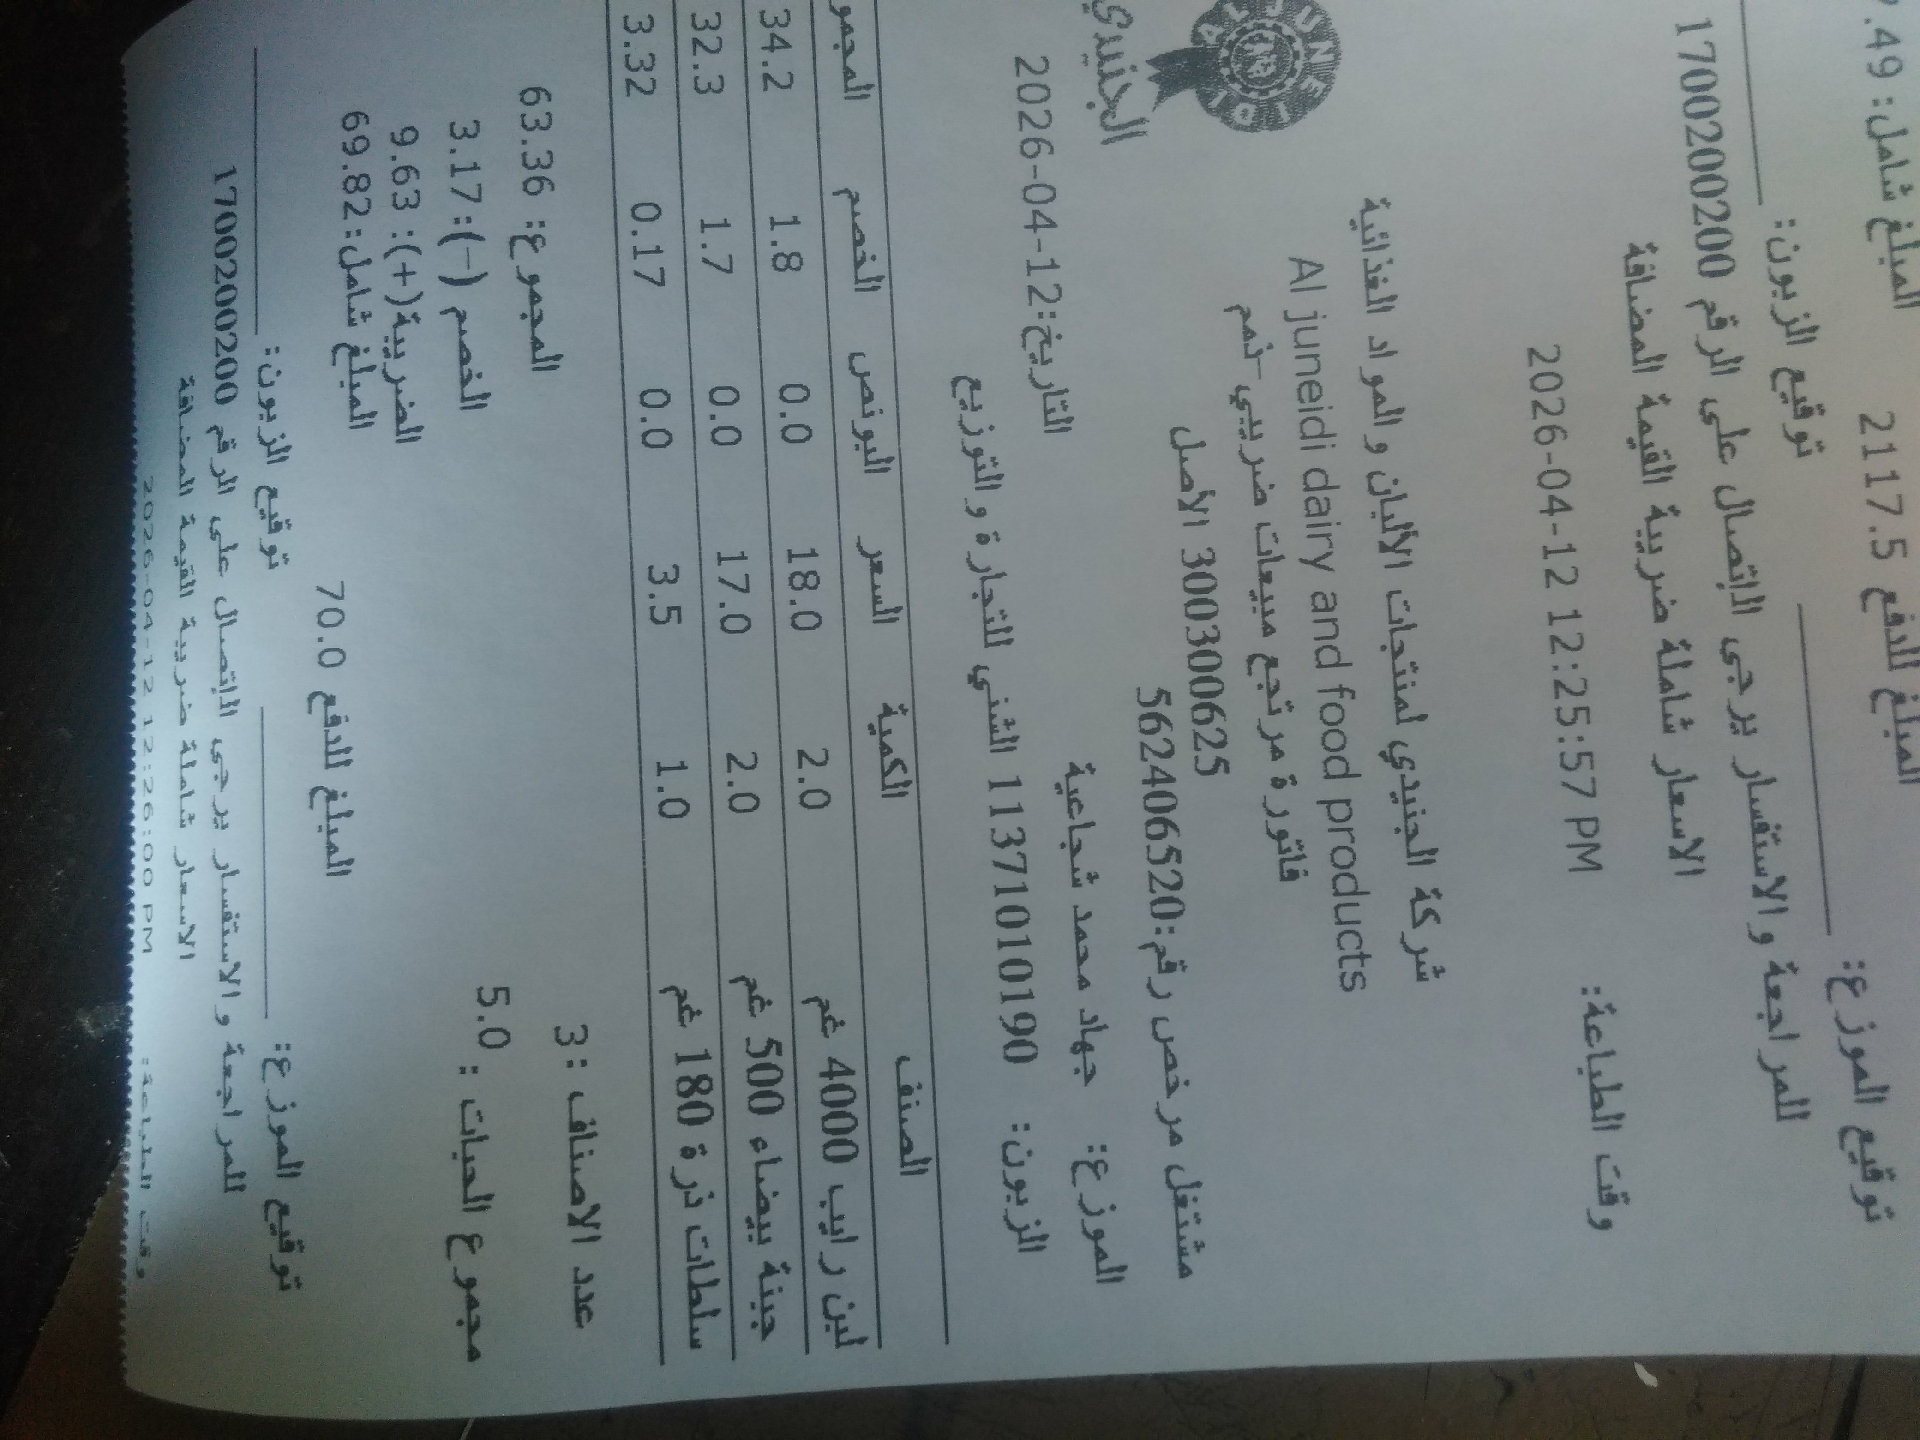 المبلغ شامل: 49. المبلغ للدفع 2117.5
توقيع الزبون: توقيع الموزع:
للمراجعة والاستفسار يرجى الاتصال على الرقم 1700200200
الاسعار شاملة ضريبة القيمة المضافة
وقت الطباعة: 2026-04-12 12:25:57 PM
الجنيدي
شركة الجنيدي لمنتجات الألبان والمواد الغذائية
Al juneidi dairy and food products
فاتورة مرتجع مبيعات ضريبي-ذمم
300300625 الأصل
مشتغل مرخص رقم:562406520
الموزع: جهاد محمد شجاعية التاريخ:2026-04-12
الزبون: 11371010190 الشني للتجارة والتوزيع
الصنف الكمية السعر البونص الخصم المجمو
لبن رايب 4000 غم 2.0 18.0 0.0 1.8 34.2
جبنة بيضاء 500 غم 2.0 17.0 0.0 1.7 32.3
سلطات ذرة 180 غم 1.0 3.5 0.0 0.17 3.32
عدد الاصناف :3 المجموع: 63.36
مجموع الحبات : 5.0 الخصم (-): 3.17
الضريبة(+): 9.63
المبلغ شامل: 69.82
المبلغ للدفع 70.0
توقيع الزبون: توقيع الموزع:
للمراجعة والاستفسار يرجى الاتصال على الرقم 1700200200
الاسعار شاملة ضريبة القيمة المضافة
وقت الطباعة: 2026-04-12 12:26:00 PM